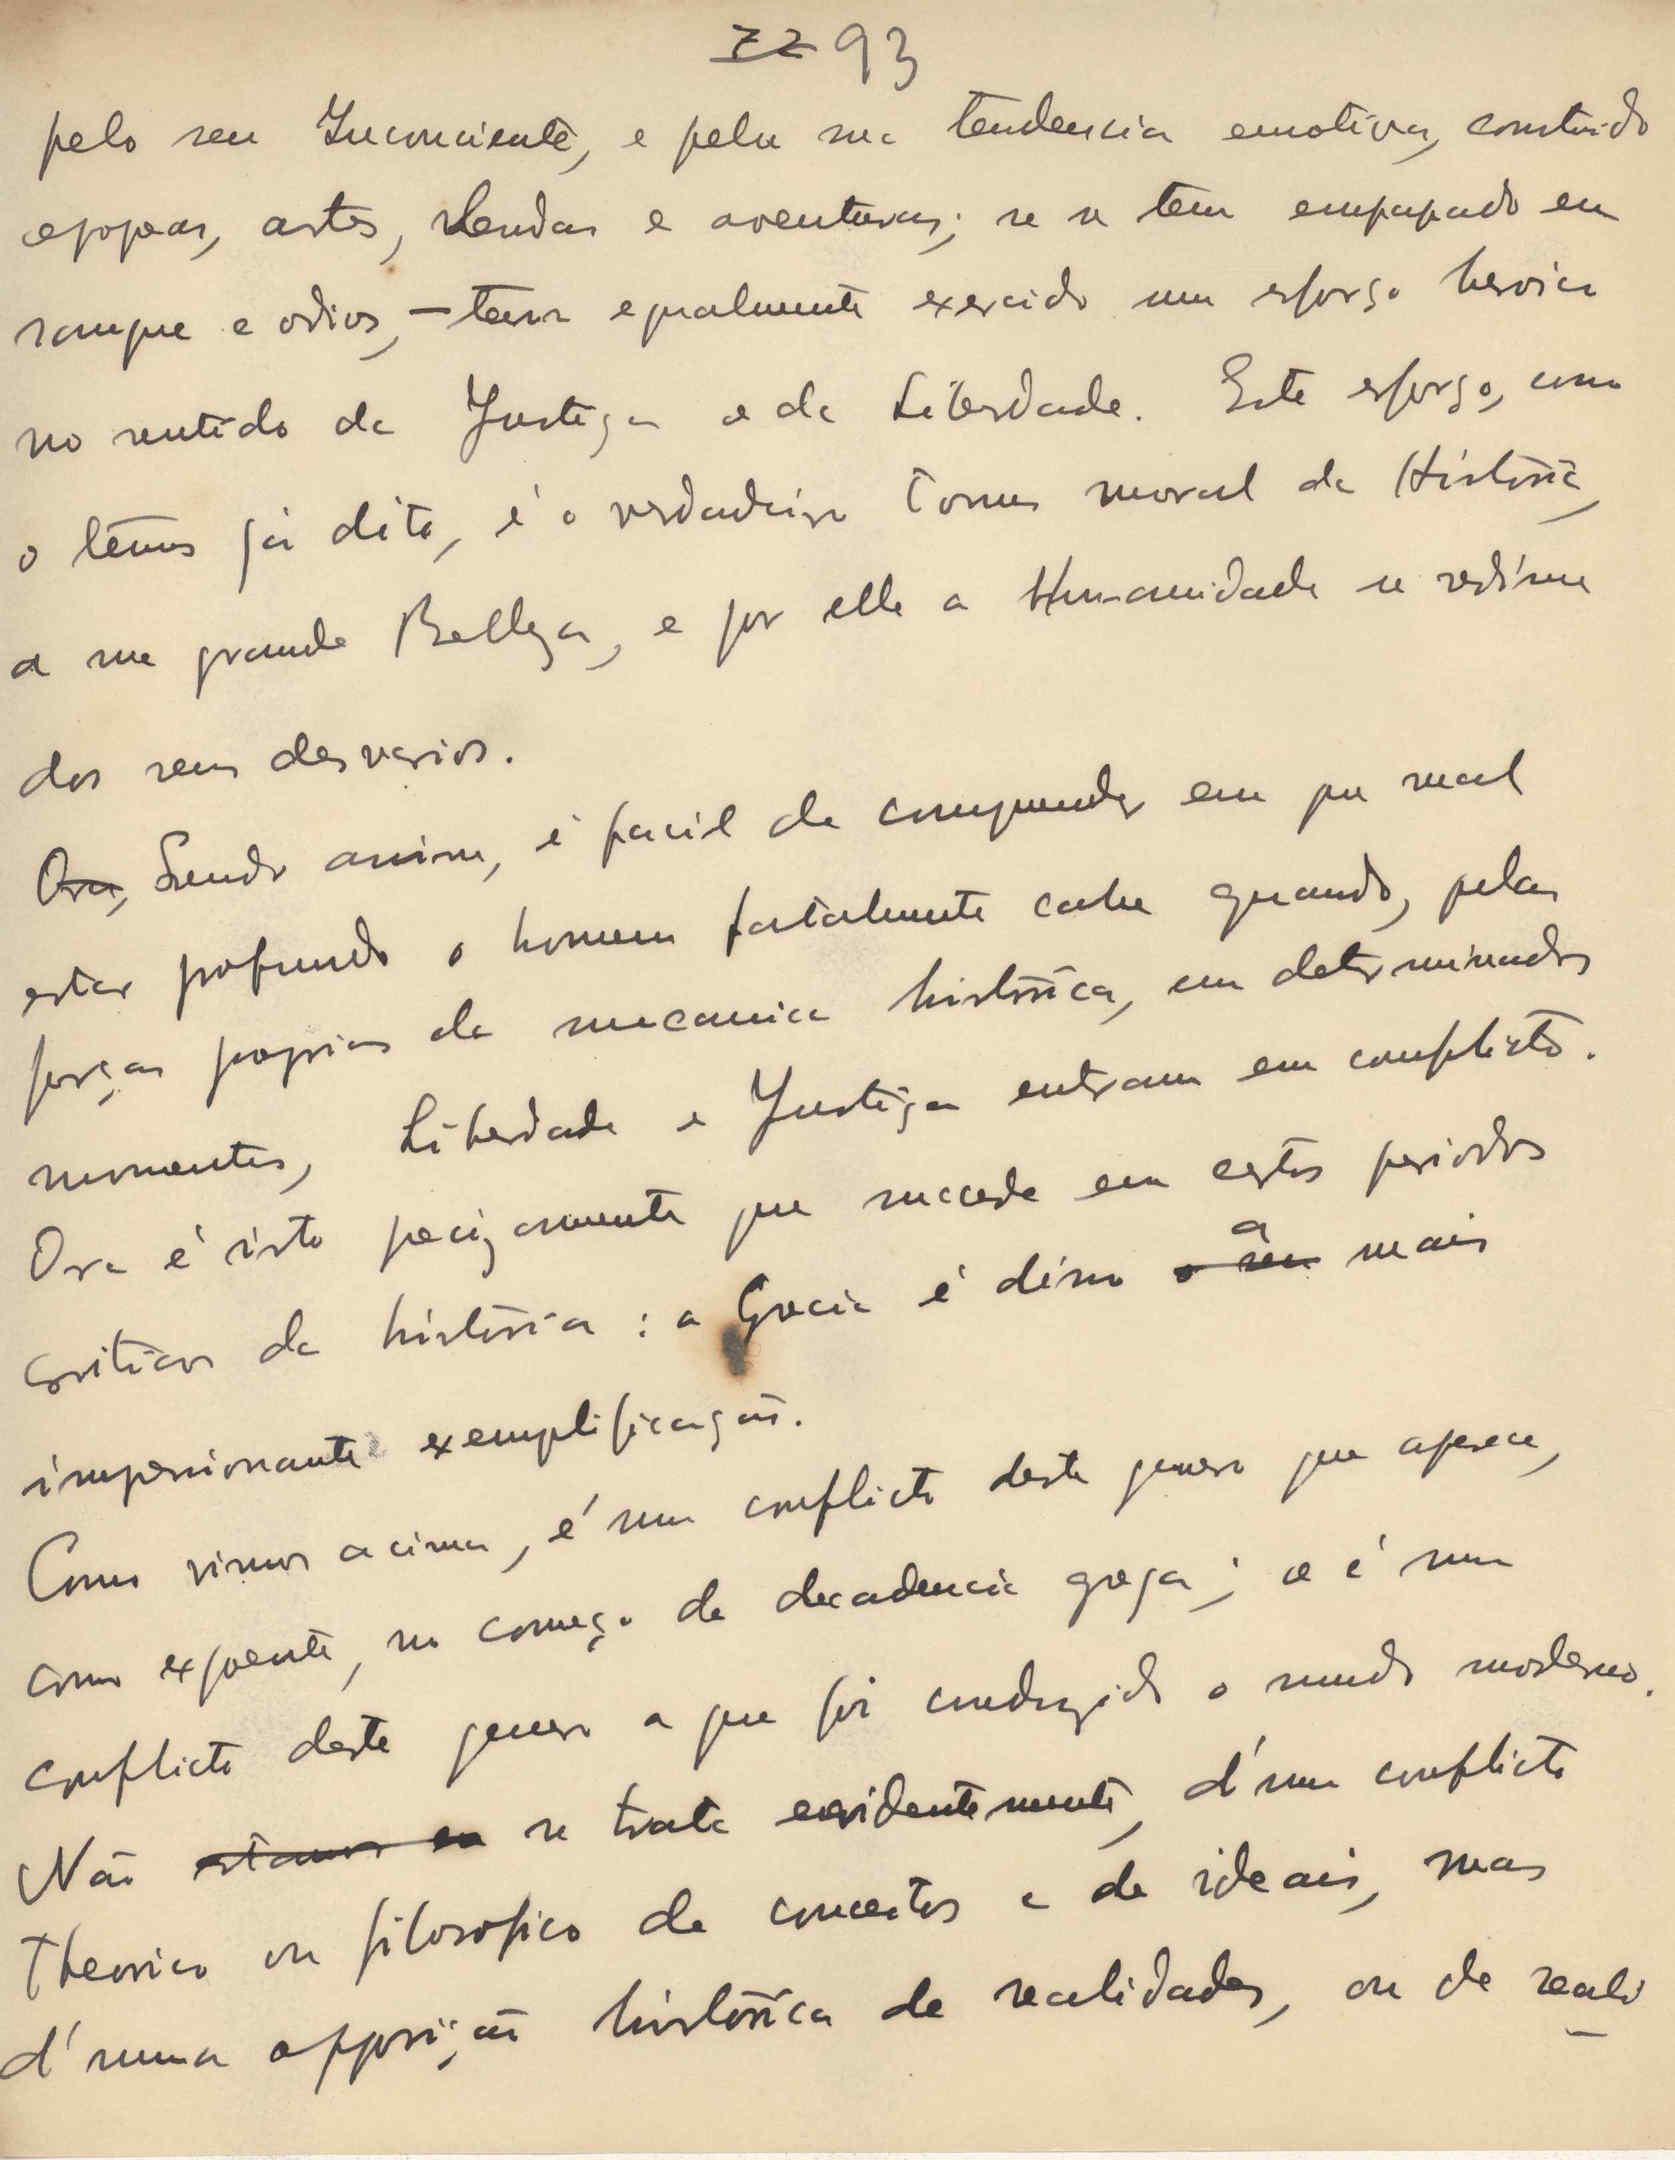 72 93
pelo seu Inconciente, e pela sua tendencia emotiva, construido
epopeas, artes, lendas e aventuras; se se tem empapado em
sangue e odios, — tem egualmente exercido um esforço heroico
no sentido da Justiça e da Liberdade. Este esforço, como
o temos já dito, é o verdadeiro Tonus moral da História,
a sua grande Belleza, e por elle a Humanidade se redime
dos seus desvarios.
Ora, Sendo assim, é facil de comprender em que mal
estar profundo o homem fatalmente cahe quando, pelas
forças proprias da mecanica histórica, em determinados
momentos, Liberdade e Justiça entram em conflicto.
Ora é isto precizamente que succede em certos periodos
criticos da história : a Grecia é disso o seu a mais
impressionante exemplificação.
Como vimos acima, é um conflicto deste genero que aparece,
como expoente, no começo da decadencia grega; e é um
conflicto deste genero a que foi conduzido o mundo moderno.
Não estamos em se trata evidentemente, d'um conflicto
theorico ou filosofico de conceitos e de ideais, mas
d'numa opposição histórica de realidades, ou de reali